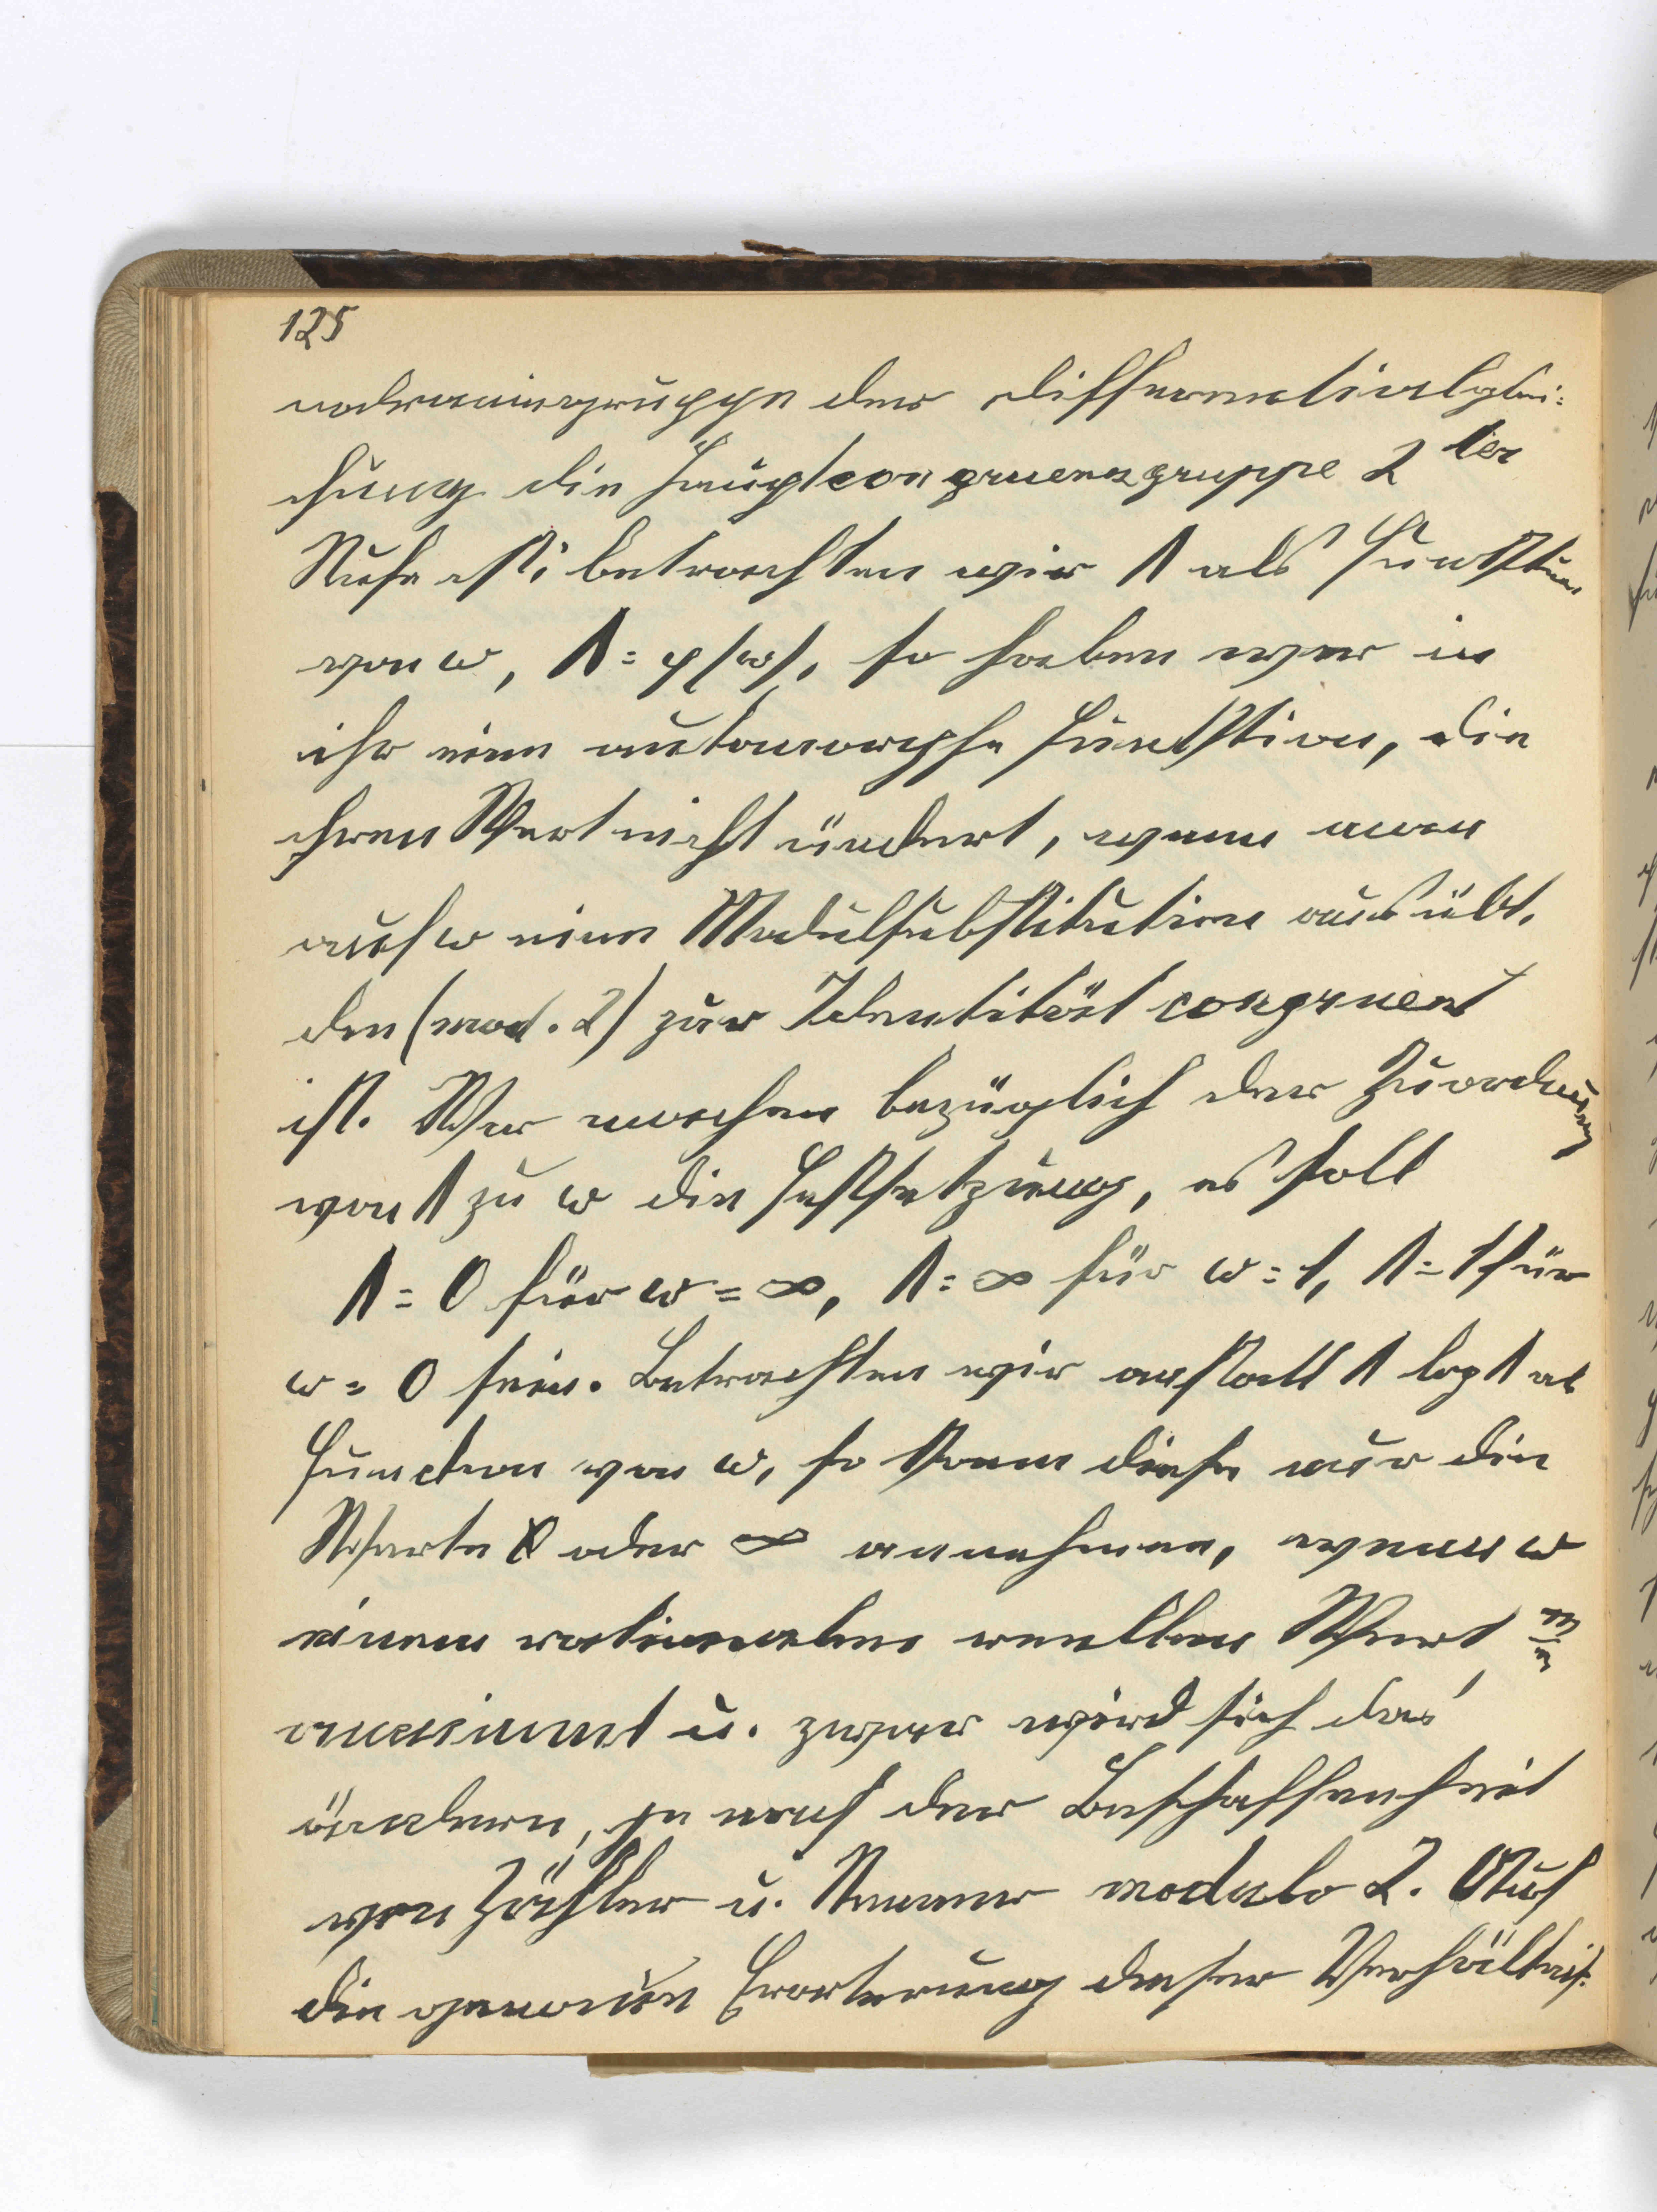 125
nodromiegruppe der Differentialglei-
chung die Hauptcongruenzgruppe 2ter
Stufe ist; betrachten wir Λ als Funktion
von ω, Λ = φ(ω), so haben wir in
ihr eine automorphe Funktion, die
ihren Wert nicht ändert, wenn man
auf ω eine Modulsubstitution ausübt,
die (mod. 2) zur Identität congruent
ist. Wir machen bezüglich der Zuordnung
von Λ zu ω die Festsetzung, es soll
Λ = 0 für ω = ∞, Λ = ∞ für ω = 1, Λ = 1 für
ω = 0 sein. Betrachten wir anstatt Λ log Λ als
Function von ω, so kann diese nur die
Werte 0 oder ∞ annehmen, wenn ω
einen rationalen reellen Wert m/n
annimmt u. zwar wird sich das
ändern, je nach der Beschaffenheit
von Zähler u. Nenner modulo 2. Auf
die genauen Erörterung dieser Verhältnis-